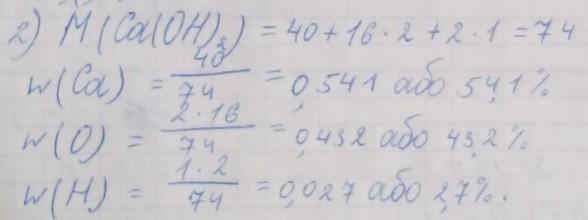 2) M(Ca(OH)₂) = 40 + 16 · 2 + 2 · 1 = 74
w(Ca) = 40/74 = 0,541 або 54,1%
w(O) = 2·16/74 = 0,432 або 43,2%
w(H) = 1·2/74 = 0,027 або 2,7%.